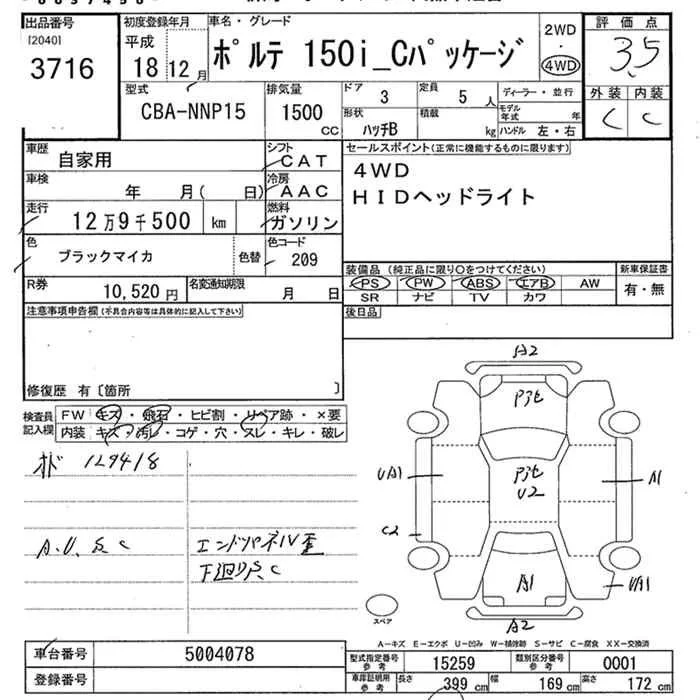 出品番号
[2040]
3716
初度登録年月
平成
18 12月
車名・グレード
ポルテ 150i_Cパッケージ
2WD
・
4WD
評価点
3.5
外装 内装
C C
型式
CBA-NNP15
排気量
1500 CC
ドア 3
定員 5 人
形状
ハッチB
積載 kg
ディーラー・並行
モデル年式 年
ハンドル 左・右
車歴
自家用
シフト
CAT
車検
年 月( 日)
冷房
AAC
走行
12万9千500 km
燃料
ガソリン
色
ブラックマイカ
色替
色コード
209
R券
10,520 円
名変通知期限
月 日
セールスポイント(正常に機能するものに限ります)
4WD
HIDヘッドライト
装備品 (純正品に限り○をつけてください)
PS PW ABS エアB AW
SR ナビ TV カワ
新車保証書
有・無
後日品
注意事項申告欄(不具合内容等は具体的に記入して下さい)
修復歴 有〔箇所 〕
検査員記入欄
FW キズ・飛石・ヒビ割・リペア跡・×要
内装 キズ・汚レ・コゲ・穴・スレ・キレ・破レ
オド 129418
A.U.
エンドパネル歪
下廻り
A2
UA1
A1
U2
C2
A1
UA1
A2
スペア
A-キズ E-エクボ U-凹み W-補修跡 S-サビ C-腐食 XX-交換済
車台番号
5004078
登録番号
型式指定番号参考
15259
類別区分番号参考
0001
車庫証明用参考
長さ 399 cm
幅 169 cm
高さ 172 cm